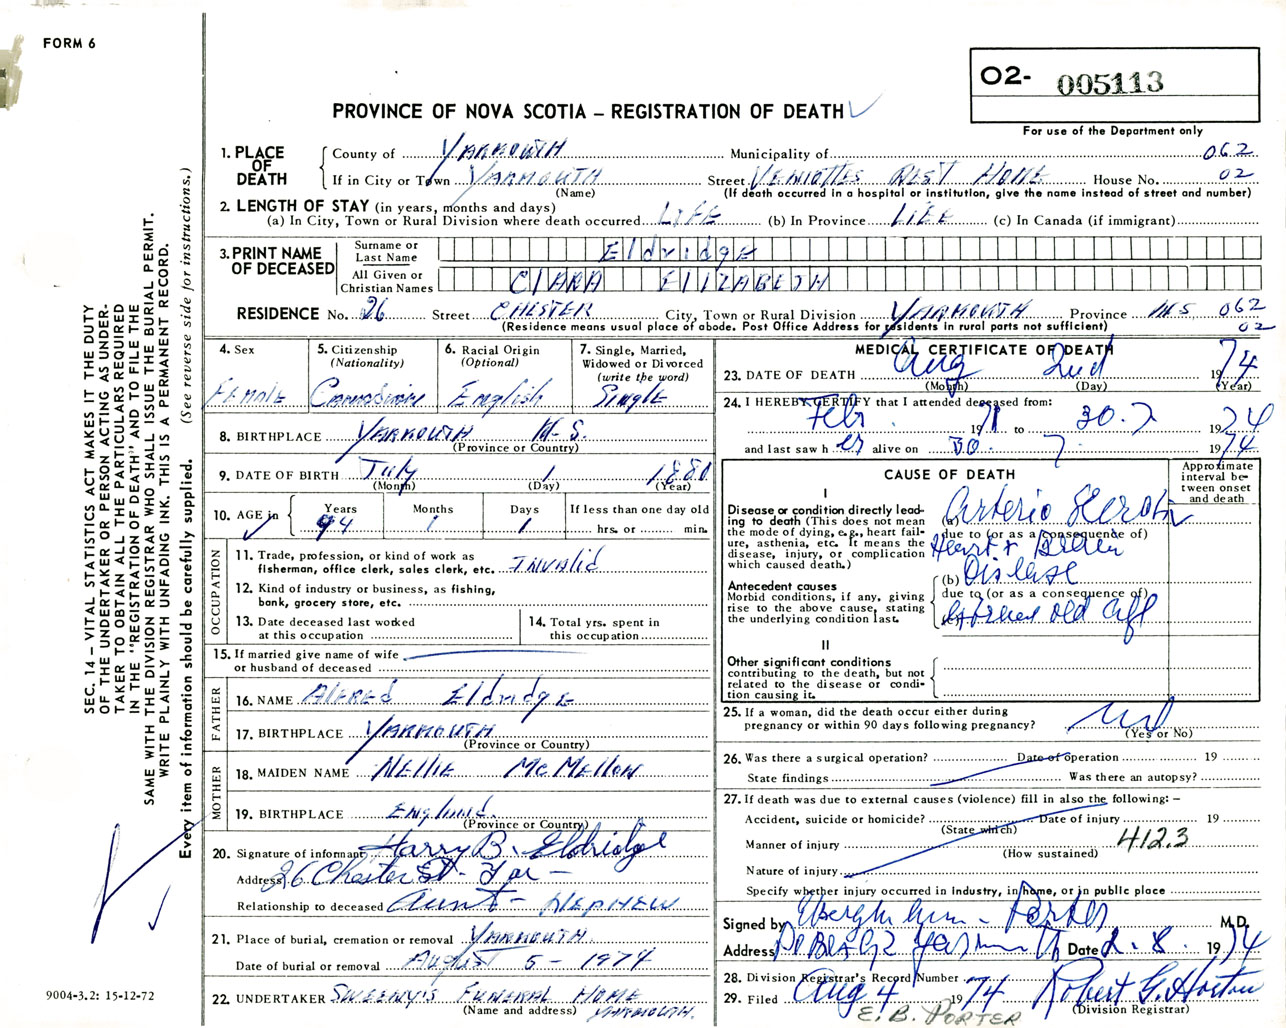 FORM 6
O2- 005113
For use of the Department only
PROVINCE OF NOVA SCOTIA – REGISTRATION OF DEATH
SEC. 14 – VITAL STATISTICS ACT MAKES IT THE DUTY
OF THE UNDERTAKER OR PERSON ACTING AS UNDER-
TAKER TO OBTAIN ALL THE PARTICULARS REQUIRED
IN THE "REGISTRATION OF DEATH" AND TO FILE THE
SAME WITH THE DIVISION REGISTRAR WHO SHALL ISSUE THE BURIAL PERMIT.
WRITE PLAINLY WITH UNFADING INK. THIS IS A PERMANENT RECORD.
Every item of information should be carefully supplied. (See reverse side for instructions.)
1. PLACE OF DEATH
County of YARMOUTH Municipality of 062
If in City or Town YARMOUTH Street VENIOTTES REST HOME House No. 02
(Name) (If death occurred in a hospital or institution, give the name instead of street and number)
2. LENGTH OF STAY (in years, months and days)
(a) In City, Town or Rural Division where death occurred LIFE (b) In Province LIFE (c) In Canada (if immigrant)
3. PRINT NAME OF DECEASED
Surname or Last Name Eldridge
All Given or Christian Names CLARA ELIZABETH
RESIDENCE No. 26 Street CHESTER City, Town or Rural Division YARMOUTH Province NS 062
(Residence means usual place of abode. Post Office Address for residents in rural parts not sufficient) 02
4. Sex Female
5. Citizenship (Nationality) Canadian
6. Racial Origin (Optional) English
7. Single, Married, Widowed or Divorced (write the word) Single
8. BIRTHPLACE YARMOUTH N.S.
(Province or Country)
9. DATE OF BIRTH July 1 1880
(Month) (Day) (Year)
10. AGE in Years 94 Months 1 Days 1 If less than one day old hrs. or min.
OCCUPATION
11. Trade, profession, or kind of work as
fisherman, office clerk, sales clerk, etc. INVALID
12. Kind of industry or business, as fishing,
bank, grocery store, etc.
13. Date deceased last worked
at this occupation
14. Total yrs. spent in
this occupation
15. If married give name of wife
or husband of deceased
FATHER
16. NAME ALFRED Eldridge
17. BIRTHPLACE YARMOUTH
(Province or Country)
MOTHER
18. MAIDEN NAME NELLIE McMELLON
19. BIRTHPLACE England.
(Province or Country)
20. Signature of informant Harry B. Eldridge
Address 26 Chester St. Yar –
Relationship to deceased Aunt – NEPHEW
21. Place of burial, cremation or removal YARMOUTH
Date of burial or removal AUGUST 5 – 1974
22. UNDERTAKER SWEENY'S FUNERAL HOME
(Name and address) YARMOUTH.
MEDICAL CERTIFICATE OF DEATH
23. DATE OF DEATH Aug 2nd 1974
(Month) (Day) (Year)
24. I HEREBY CERTIFY that I attended deceased from:
Feb 1971 to 30.7 1974
and last saw h er alive on 30. 7. 1974
CAUSE OF DEATH
Approximate interval be-tween onset and death
I
Disease or condition directly lead-
ing to death (This does not mean
the mode of dying, e.g., heart fail-
ure, asthenia, etc. It means the
disease, injury, or complication
which caused death.)
(a) Arterio Sclerotic
due to (or as a consequence of)
Heart +
(b) Disease
due to (or as a consequence of)
old age
Antecedent causes
Morbid conditions, if any, giving
rise to the above cause, stating
the underlying condition last.
II
Other significant conditions
contributing to the death, but not
related to the disease or condi-
tion causing it.
25. If a woman, did the death occur either during
pregnancy or within 90 days following pregnancy?
(Yes or No)
26. Was there a surgical operation? Date of operation 19
State findings Was there an autopsy?
27. If death was due to external causes (violence) fill in also the following: –
Accident, suicide or homicide? Date of injury 19
(State which)
Manner of injury 412.3
(How sustained)
Nature of injury
Specify whether injury occurred in industry, in home, or in public place
Signed by M.D.
Address Date 2.8. 1974
28. Division Registrar's Record Number
29. Filed Aug 4 1974 Robert G. Horton
(Division Registrar)
E. B. PORTER
9004-3.2: 15-12-72